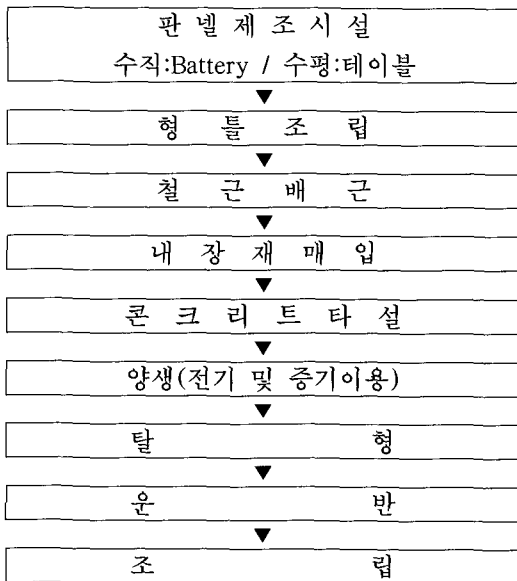 판 넬 제 조 시 설
수직:Battery / 수평:테이블
▼
형 틀 조 립
▼
철 근 배 근
▼
내 장 재 매 입
▼
콘 크 리 트 타 설
▼
양생(전기 및 증기이용)
▼
탈 형
▼
운 반
▼
조 립